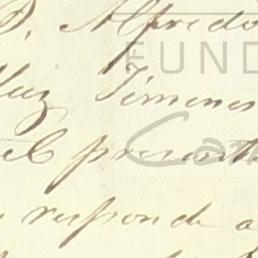 D. Alfredo
FUND
Luz Jimenes
el presente
responde a